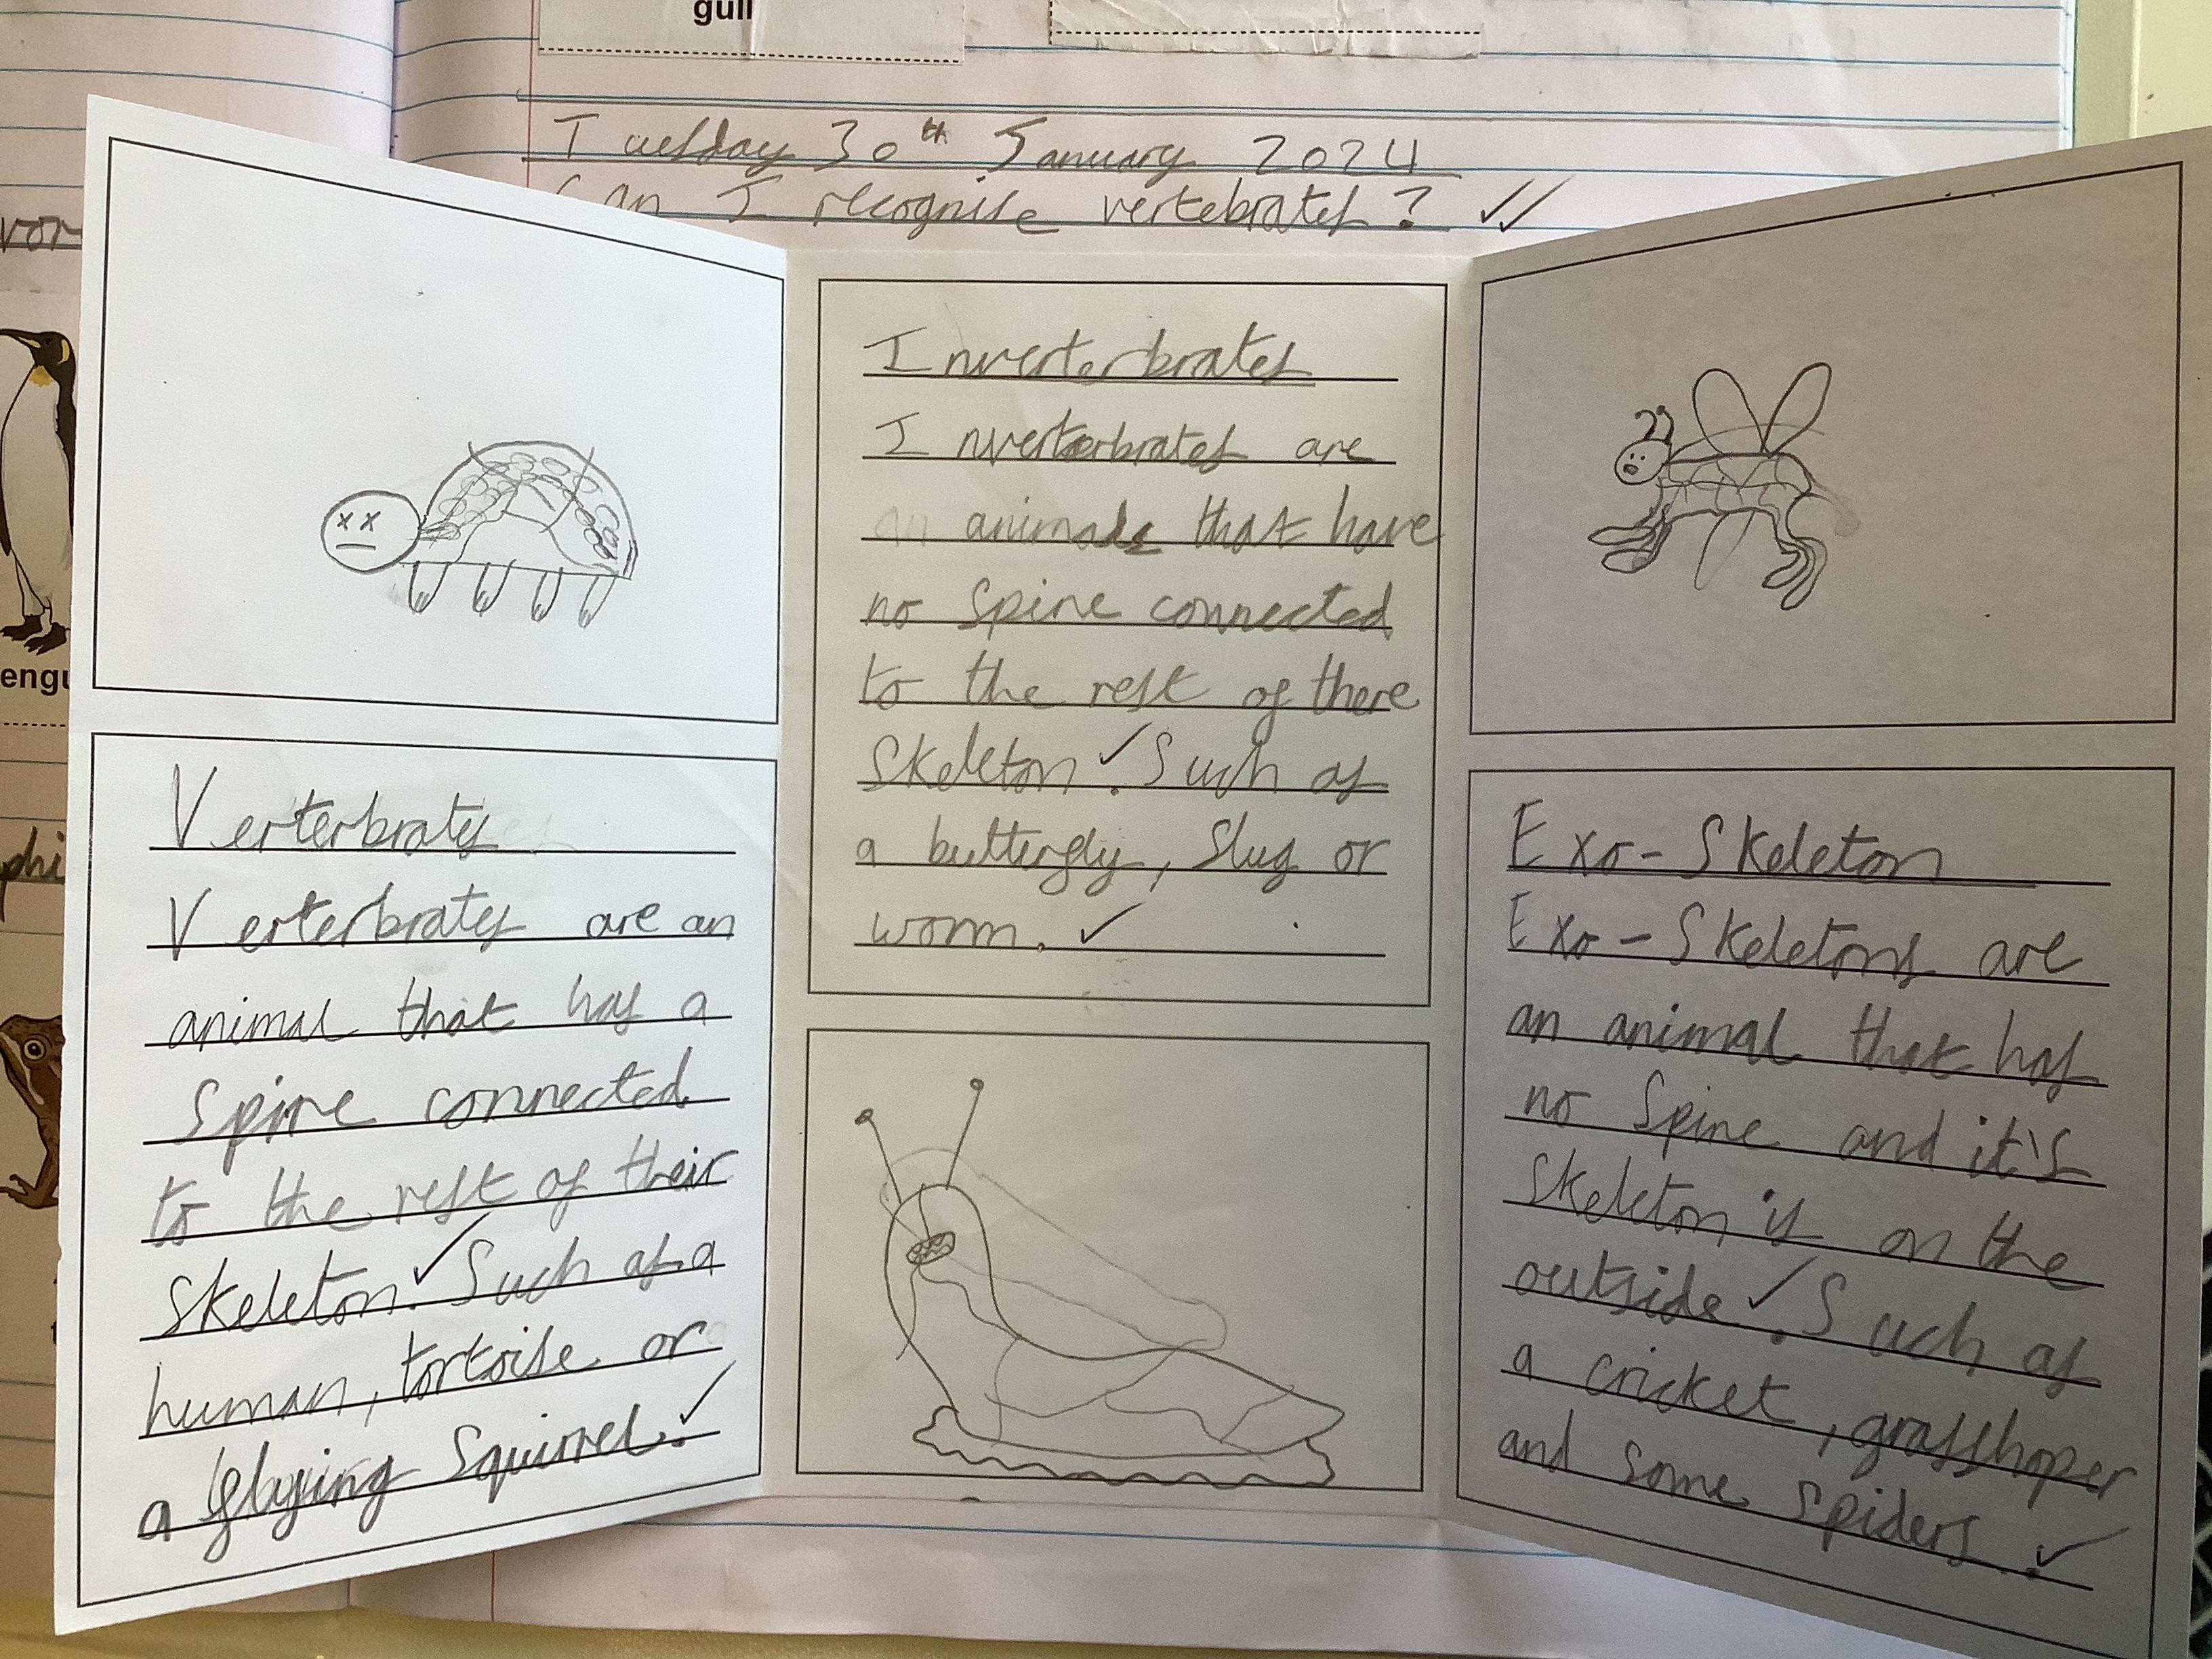 gull
Tuesday 30th January 2024
Can I recognise vertebrates?
Verterbrates
Verterbrates are an
animal that has a
spine connected
to the rest of their
skeleton. Such as a
human, tortoise or
a flying squirrel.
Inverterbrates
Inverterbrates are
an animals that have
no spine connected
to the rest of there
skeleton. Such as
a butterfly, slug or
worm.
Exo-Skeleton
Exo-Skeletons are
an animal that has
no spine and it's
skeleton is on the
outside. Such as
a cricket, grasshoper
and some spiders.